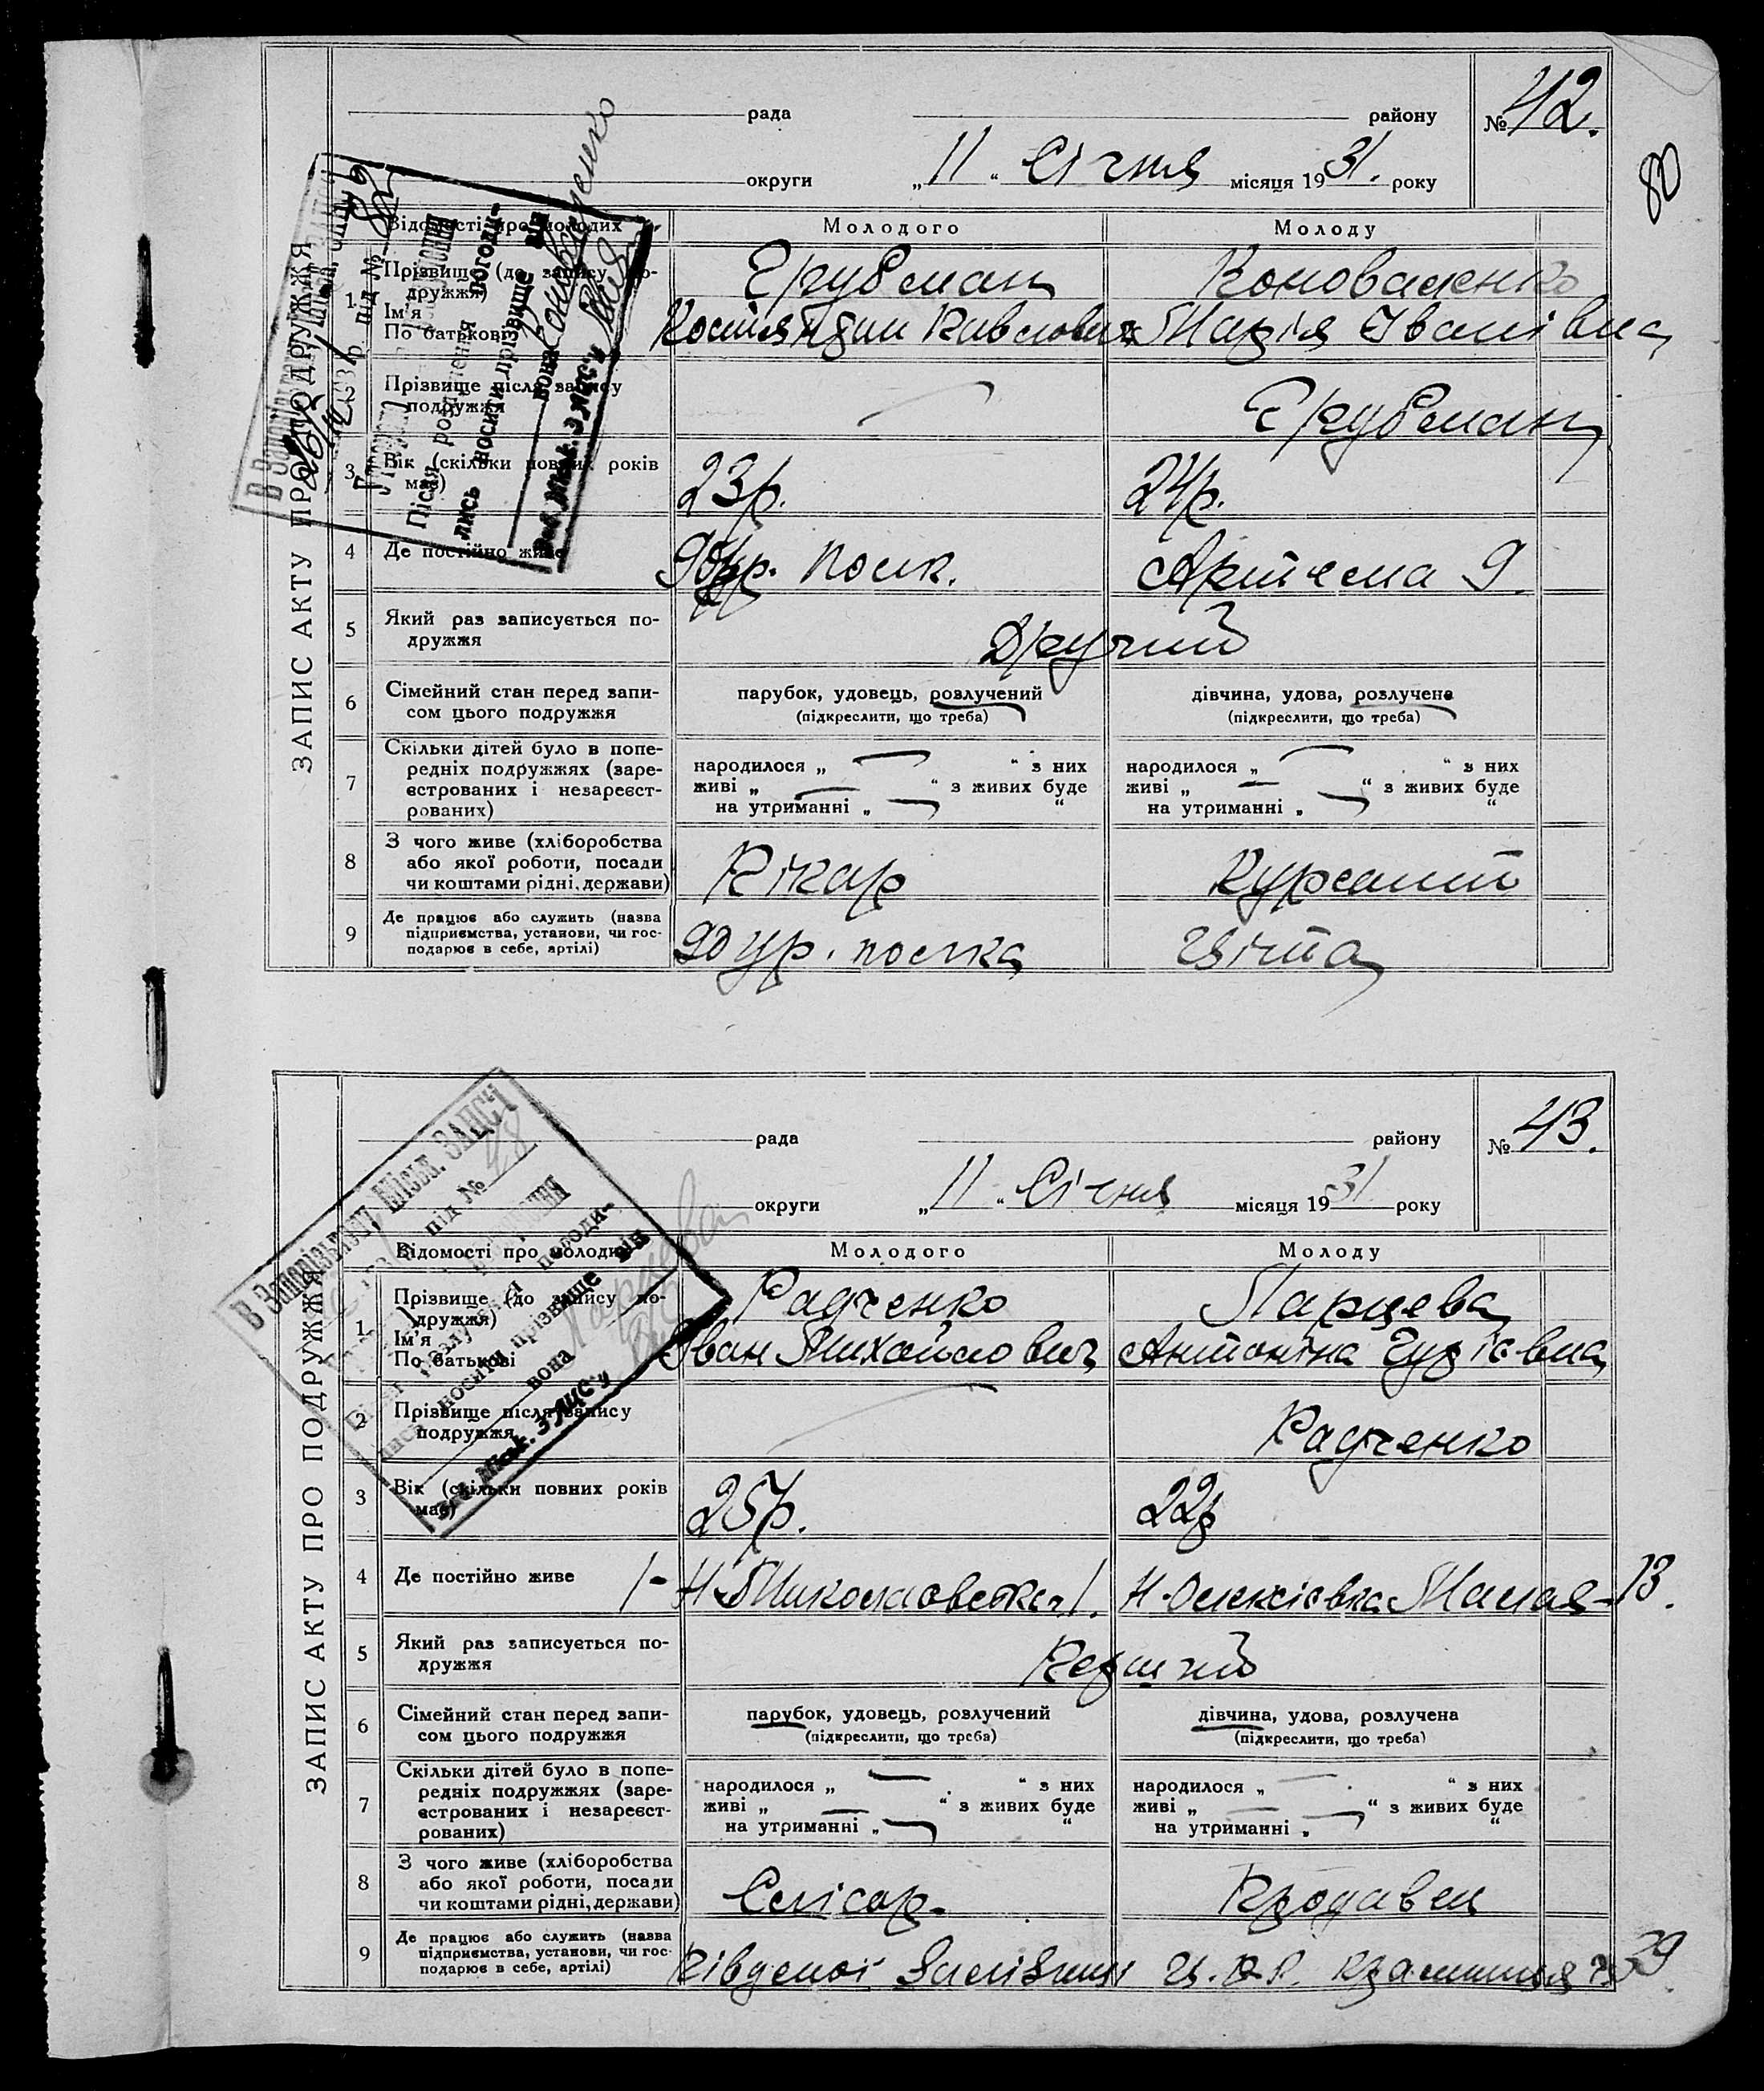 80
ЗАПИС АКТУ ПРО ПОДРУЖЖЯ
рада району № 42.
округи „11“ Січня місяця 1931. року
Відомості про молодих Молодого Молоду
1 Прізвище (до запису по-
дружжя)
Ім'я
По батькові
Грубман
Костянтин Павлович
Коноваленко
Марія Іванівна
2 Прізвище після запису
подружжя
Грубман
3 Вік (скільки повних років
має)
23р. 24р.
4 Де постійно живе
полк. Артема 9.
5 Який раз записується по-
дружжя
Другий
6 Сімейний стан перед запи-
сом цього подружжя
парубок, удовець, розлучений
(підкреслити, що треба)
дівчина, удова, розлучена
(підкреслити, що треба)
7 Скільки дітей було в попе-
редніх подружжях (заре-
єстрованих і незареєст-
рованих)
народилося „ — “ з них
живі „ — “ з живих буде
на утриманні „ — “
народилося „ — “ з них
живі „ — “ з живих буде
на утриманні „ — “
8 З чого живе (хліборобства
або якої роботи, посади
чи коштами рідні, держави)
Пікар Курсант
9 Де працює або служить (назва
підприємства, установи, чи гос-
подарює в себе, артілі)
полка
В Запорізькому Міськ. ЗАГСі
під №
Після розлучення погоди-
лись носити прізвище він
вона Коноваленко
Зав. Міськ. ЗАГС'у
ЗАПИС АКТУ ПРО ПОДРУЖЖЯ
рада району № 43.
округи „11“ Січня місяця 1931 року
Відомості про молодих Молодого Молоду
1 Прізвище (до запису по-
дружжя)
Ім'я
По батькові
Радченко
Іван Михайлович
Ларцева
Антоніна
2 Прізвище після запису
подружжя
Радченко
3 Вік (скільки повних років
має)
25р. 22р
4 Де постійно живе
Н-Миколаовська 1. Н-Олексіівка Малая-13.
5 Який раз записується по-
дружжя
Перший
6 Сімейний стан перед запи-
сом цього подружжя
парубок, удовець, розлучений
(підкреслити, що треба)
дівчина, удова, розлучена
(підкреслити, що треба)
7 Скільки дітей було в попе-
редніх подружжях (заре-
єстрованих і незареєст-
рованих)
народилося „ — “ з них
живі „ — “ з живих буде
на утриманні „ — “
народилося „ — “ з них
живі „ — “ з живих буде
на утриманні „ — “
8 З чого живе (хліборобства
або якої роботи, посади
чи коштами рідні, держави)
Слісар. Продавец
9 Де працює або служить (назва
підприємства, установи, чи гос-
подарює в себе, артілі)
Південої Залізниці Крамниця 39
В Запорізькому Міськ. ЗАГСі
під № 48
розлучення погоди-
лись носити прізвище він
вона Ларцева
Зав. Міськ. ЗАГС'у